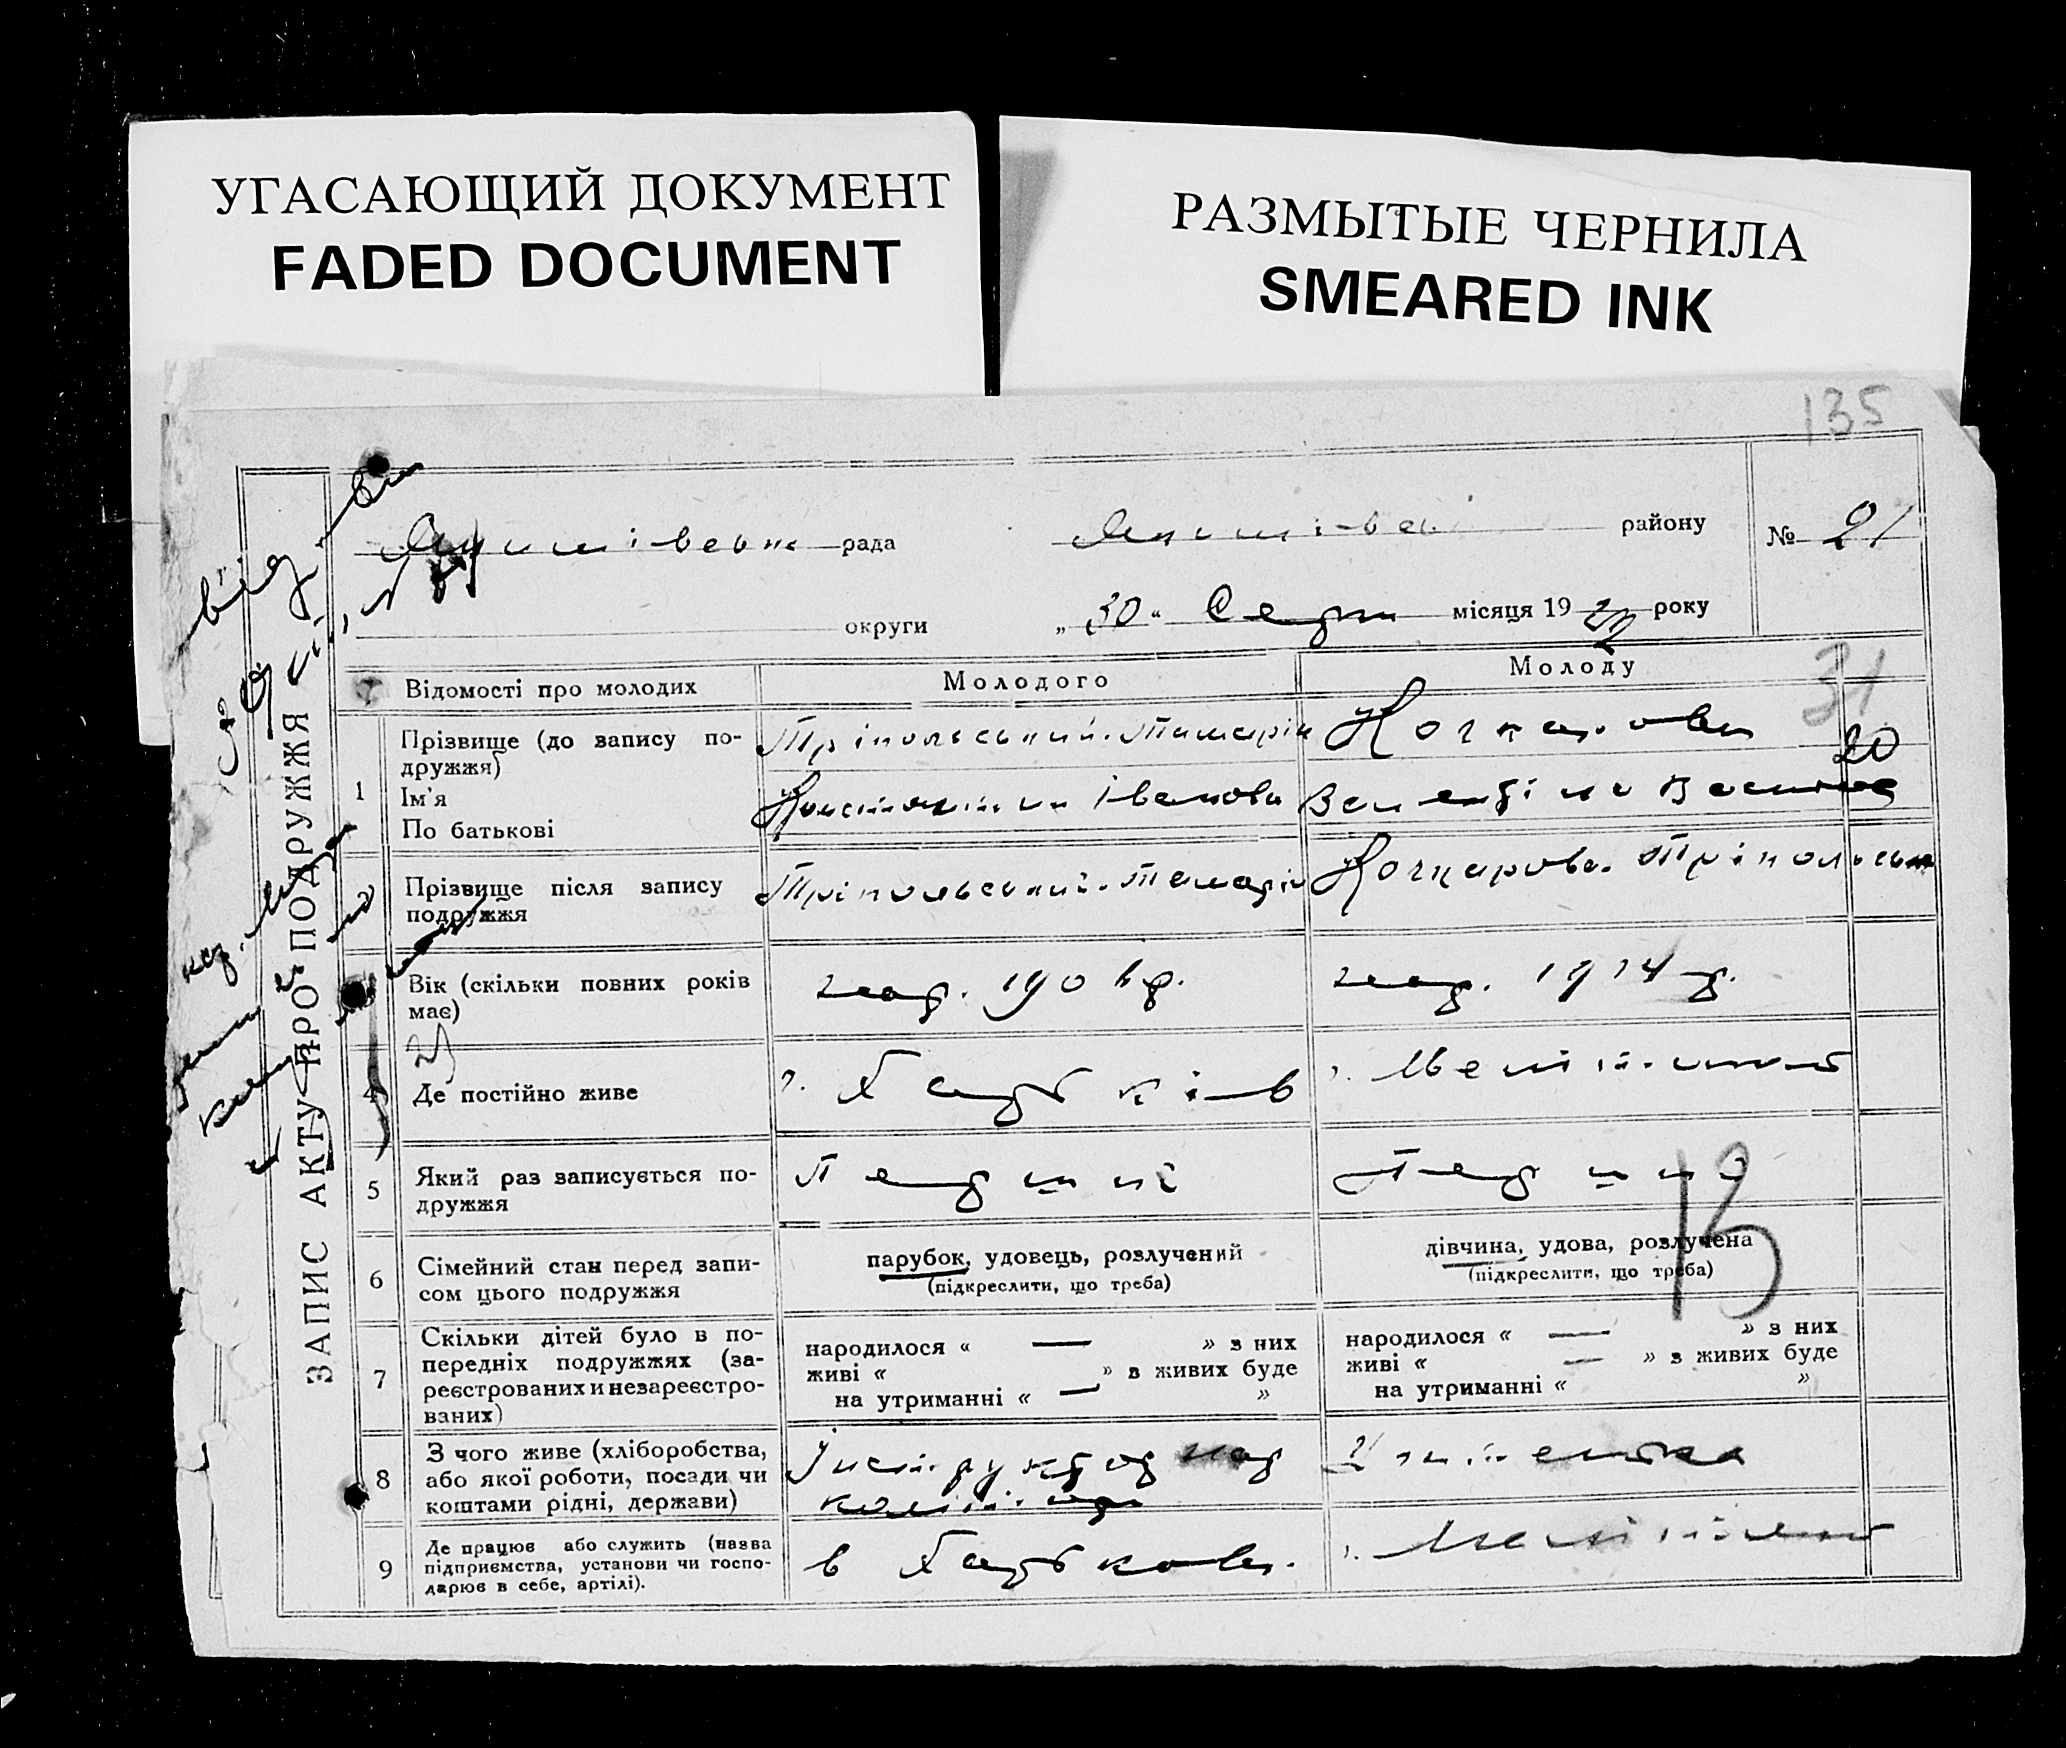 УГАСАЮЩИЙ ДОКУМЕНТ
FADED DOCUMENT
РАЗМЫТЫЕ ЧЕРНИЛА
SMEARED INK
135
ЗАПИС АКТУ ПРО ПОДРУЖЖЯ
рада
району
№ 21
округи
„ 30 “ Серп місяця 19 року
31
Відомості про молодих
Молодого
Молоду
1
Прізвище (до запису по-
дружжя)
Ім'я
По батькові
Тріпольський-Татарін
Кочкарова
20
Константин Іванови
Валентіна Василів
Прізвище після запису
подружжя
Тріпольський-Татарін
Кочкарова-Трипольська
Вік (скільки повних років
має)
нар. 1904 р.
нар. 1914 р.
4
Де постійно живе
г. Харьків
г. Мелітополь
5
Який раз записується по-
дружжя
Перший
Перший
13
6
Сімейний стан перед запи-
сом цього подружжя
парубок, удовець, розлучений
(підкреслити, що треба)
дівчина, удова, розлучена
(підкреслити, що треба)
7
Скільки дітей було в по-
передніх подружжях (за-
реєстрованих и незареєстро-
ваних)
народилося « — » з них
живі « » з живих буде
на утриманні « — »
народилося « — » з них
живі « — » з живих буде
на утриманні « »
8
З чого живе (хліборобства,
або якої роботи, посади чи
коштами рідні, держави)
Інструктор нар
Учителька
9
Де працює або служить (назва
підприємства, установи чи госпо-
дарює в себе, артілі).
в Харькові.
г. Мелітополь